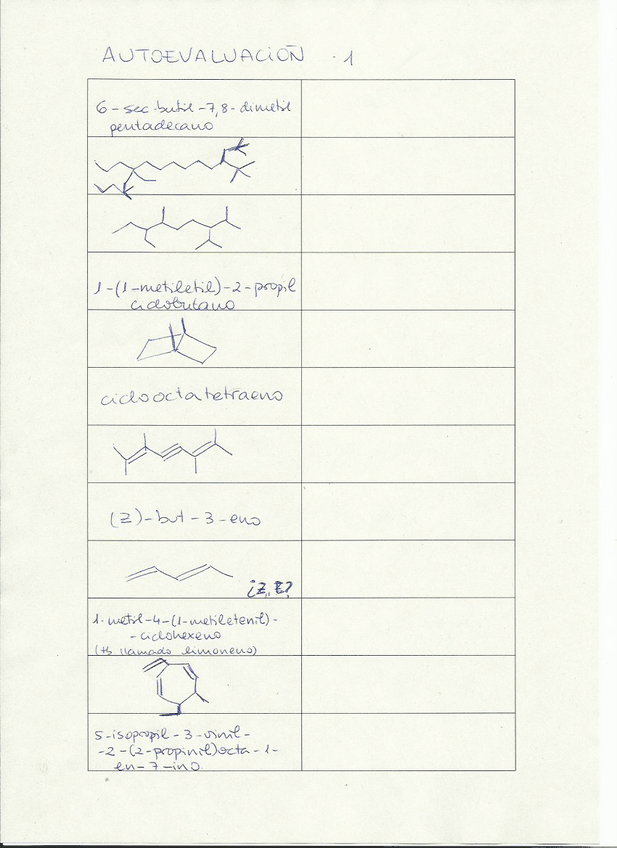 AUTOEVALUACIÓN - 1
6-sec-butil-7,8-dimetil
pentadecano
1-(1-metiletil)-2-propil
ciclobutano
ciclooctatetraeno
(Z)-but-3-eno
¿Z, E?
1-metil-4-(1-metiletenil)-
-ciclohexeno
(tb llamado limoneno)
5-isopropil-3-vinil-
-2-(2-propinil)octa-1-
en-7-ino